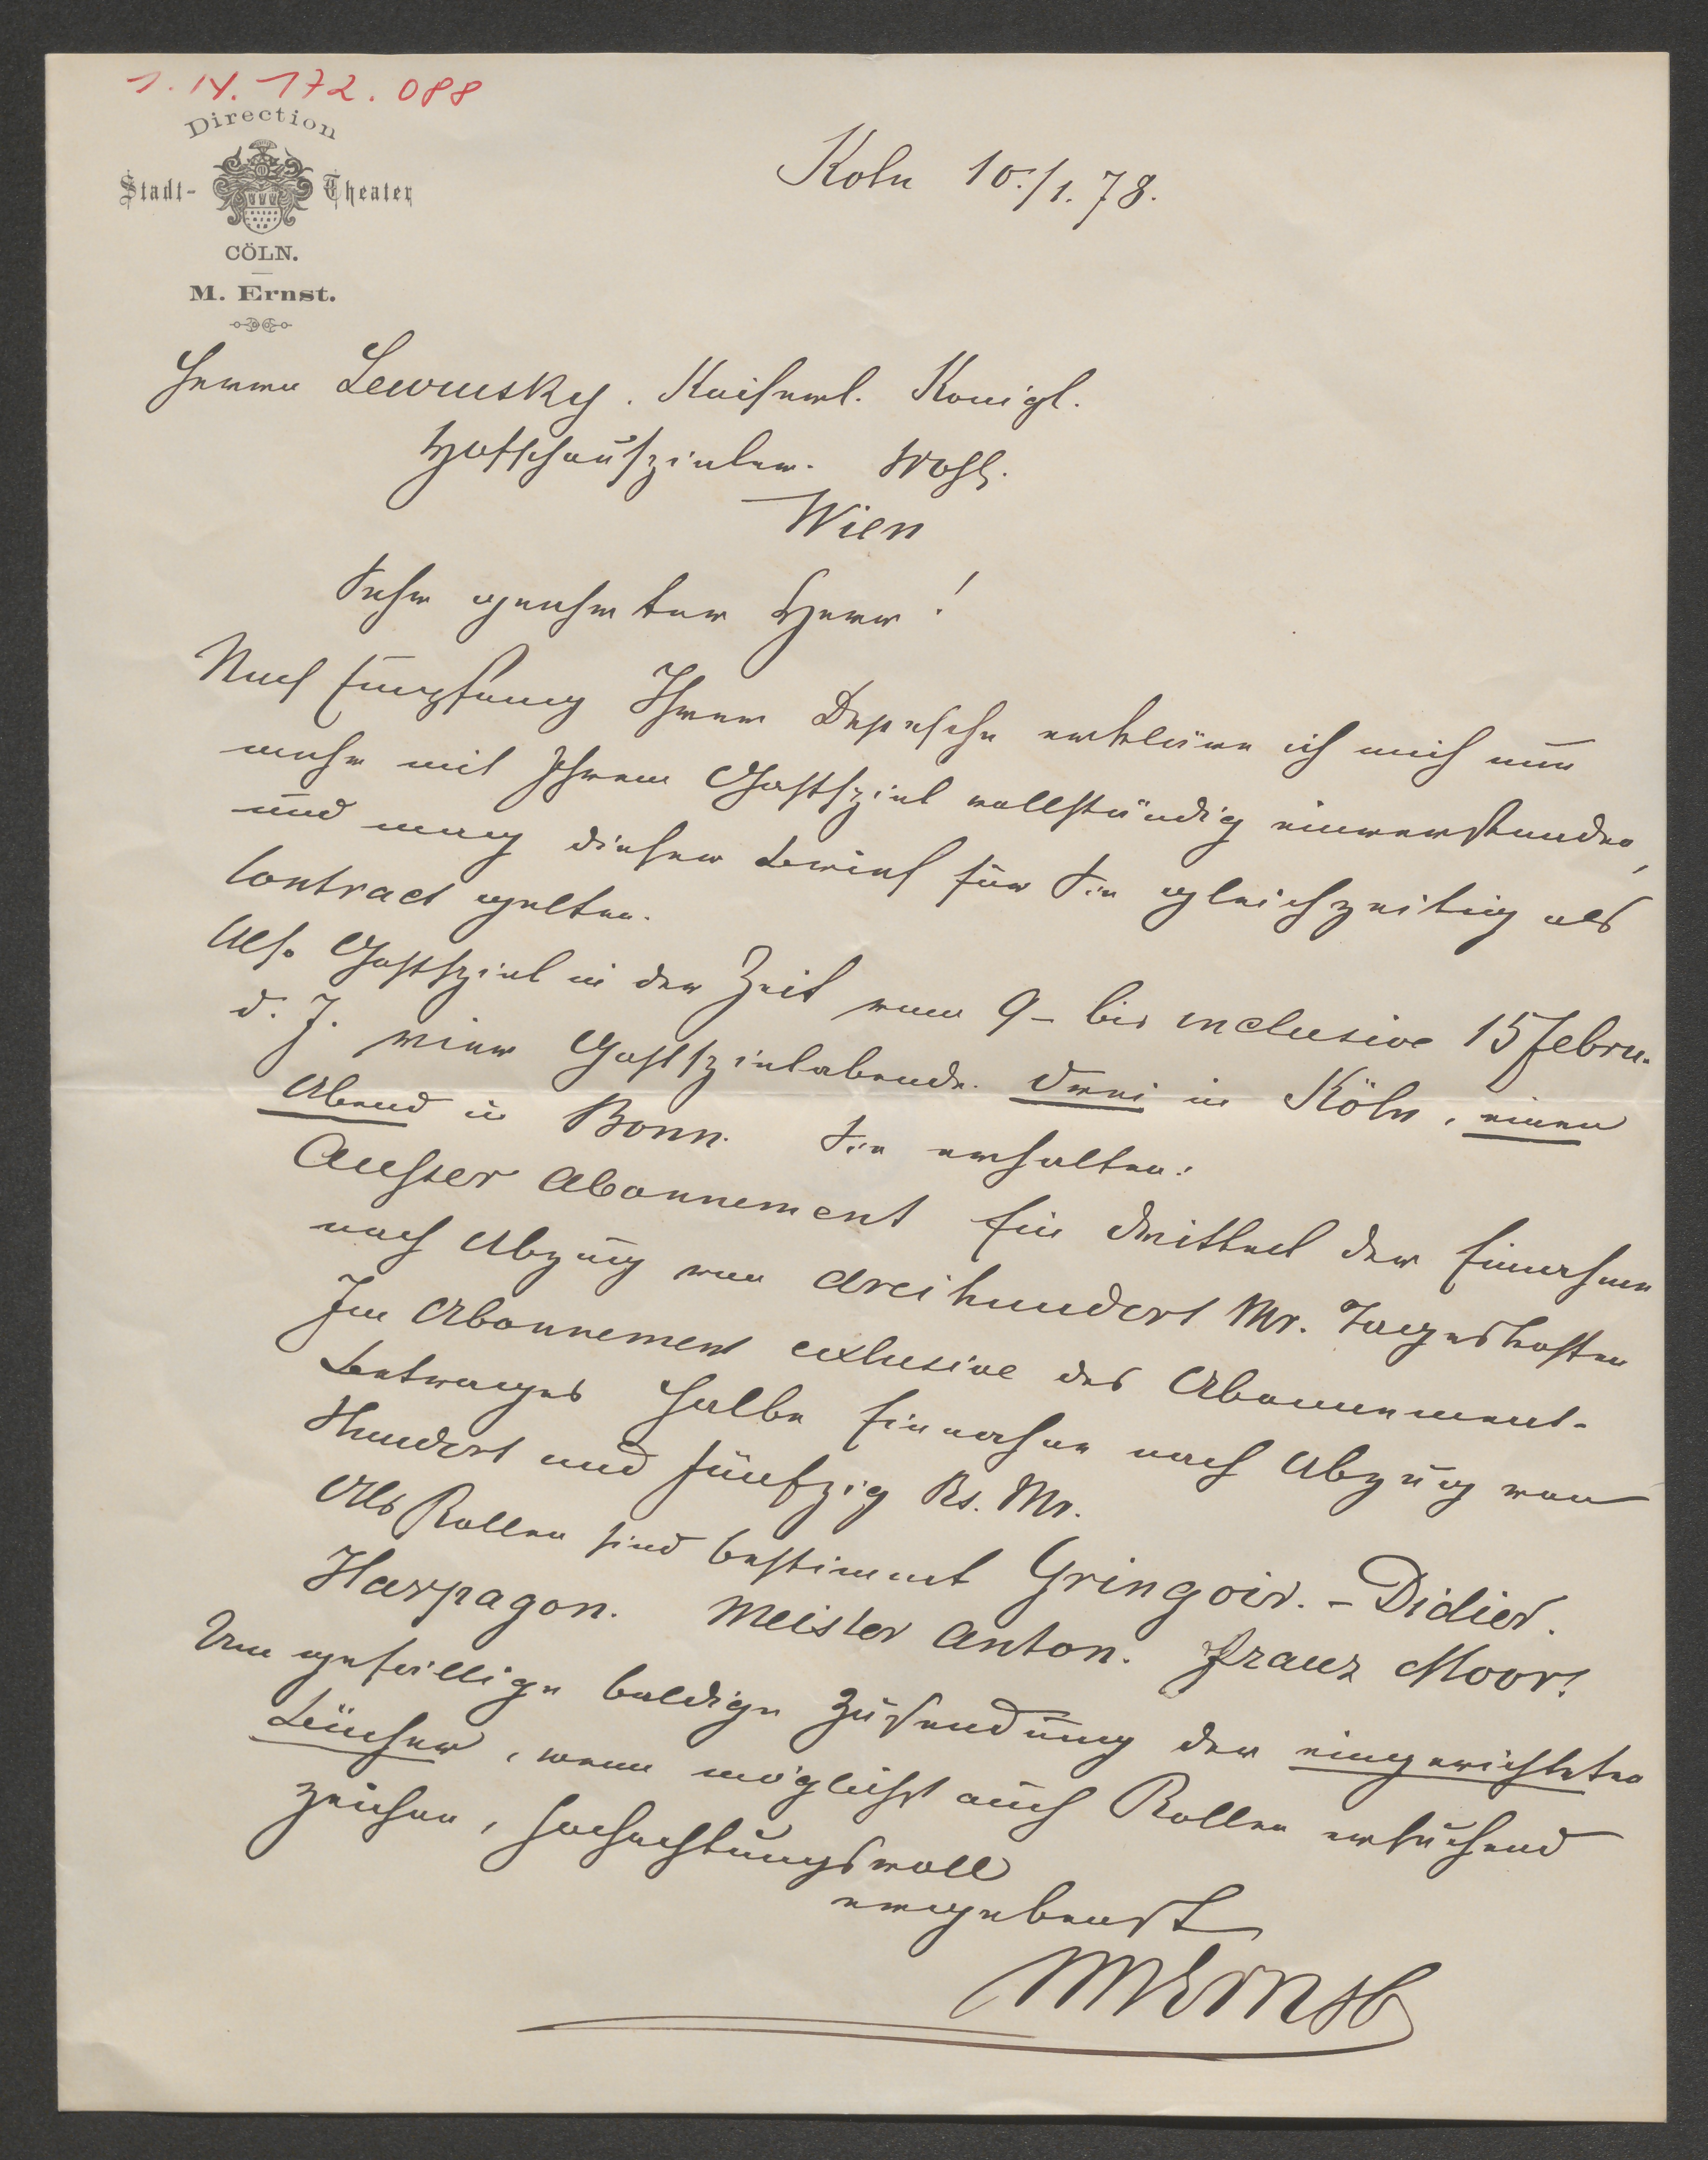 1. IV. 172. 088
Direction
Stadt- Theater
CÖLN.
M. Ernst.
Koln 10./1. 78.
Herrn Lewinsky. Kaiserl. Konigl.
Hofschauspieler. Wohlg.
Wien
Sehr geehrter Herr!
Nach Empfang Ihrer Depesche erkläre ich mich nun
mehr mit Ihrem Gastspiel vollständig einverstanden,
und mag dieser Brief für Sie gleichzeitig als
Contract gelten.
Also Gastspiel in der Zeit vom 9- bis inclusive 15 Febru.
d. J. vier Gastspielabende. drei in Köln, einen
Abend in Bonn. Sie erhalten:
Ausser Abonnement Ein Drittel der Einnahme
nach Abzug von dreihundert Mr. Tageskosten
Im Abonnement exlusive des Abonnement-
Betrages halbe Einnahme nach Abzug von
Hundert und fünfzig Rs. Mr.
Als Rollen sind bestimmt Gringoir. - Didier.
Harpagon. Meister Anton. Franz Moor!
Um gefällige baldige Zusendung der eingerichteten
Bücher, wenn möglichst auch Rollen ersuchend
zeichne, hochachtungsvoll
ergebenst
MErnst